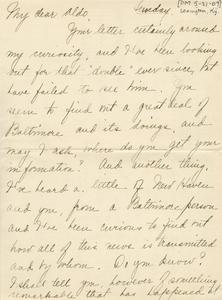 My dear Aldo, Sunday [PM 5-31-09
Lexington, Ky.]
Your letter certainly aroused
my curiosity, and I've been looking
out for that "double" ever since, but
have failed to see him. You
seem to find out a great deal of
Baltimore and its doings, and
may I ask where do you get your
information? And another thing,
I've heard a little of New Haven
and one, from a Baltimore person
and I've been curious to find out
how all of this news is transmitted
and by whom. Do you know?
I shall tell you, however of something
remarkable that has happened